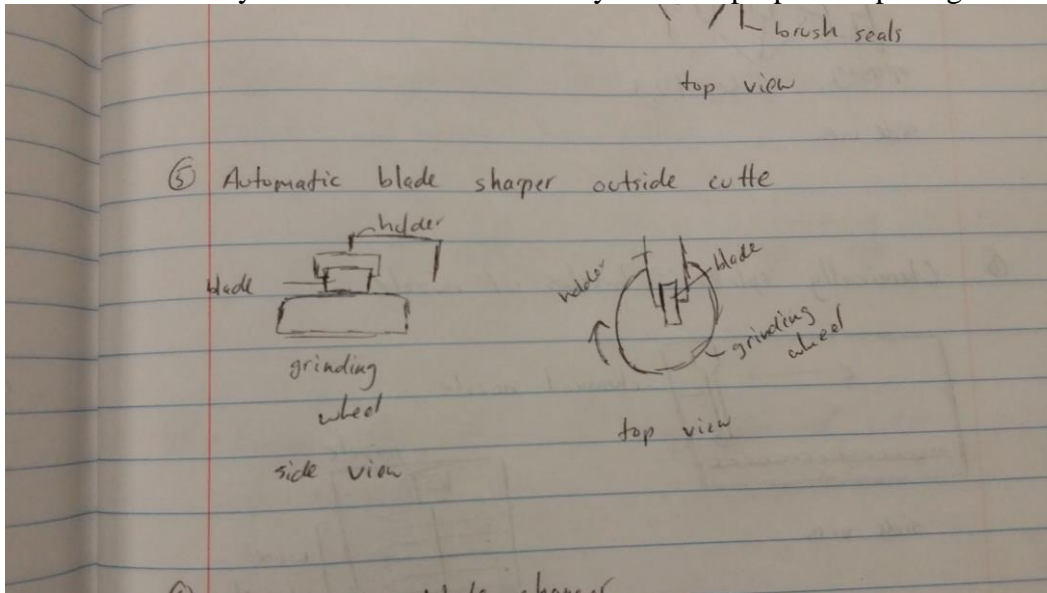 brush seals
top view
⑤ Automatic blade sharper outside cutte
holder
blade
grinding
wheel
side view
holder
blade
grinding
wheel
top view
changer